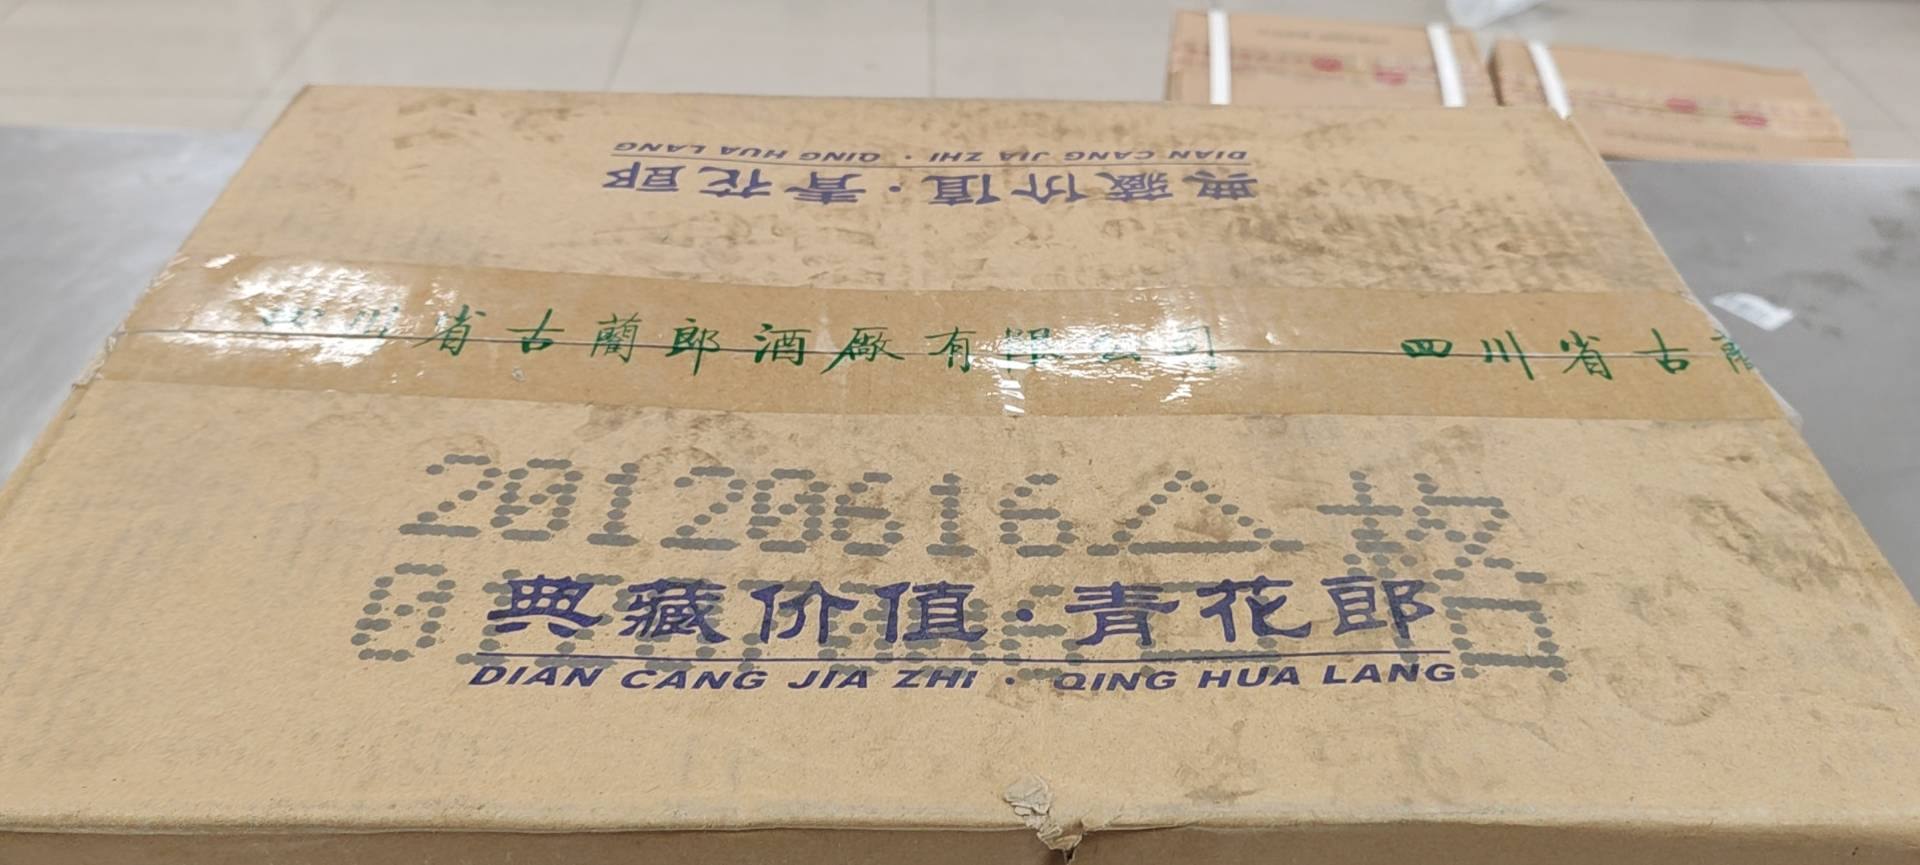 DIAN CANG JIA ZHI · QING HUA LANG
典藏价值·青花郎
四川省古蔺郎酒厰有限公司 四川省古蔺
20120616 合格
典藏价值·青花郎
DIAN CANG JIA ZHI · QING HUA LANG